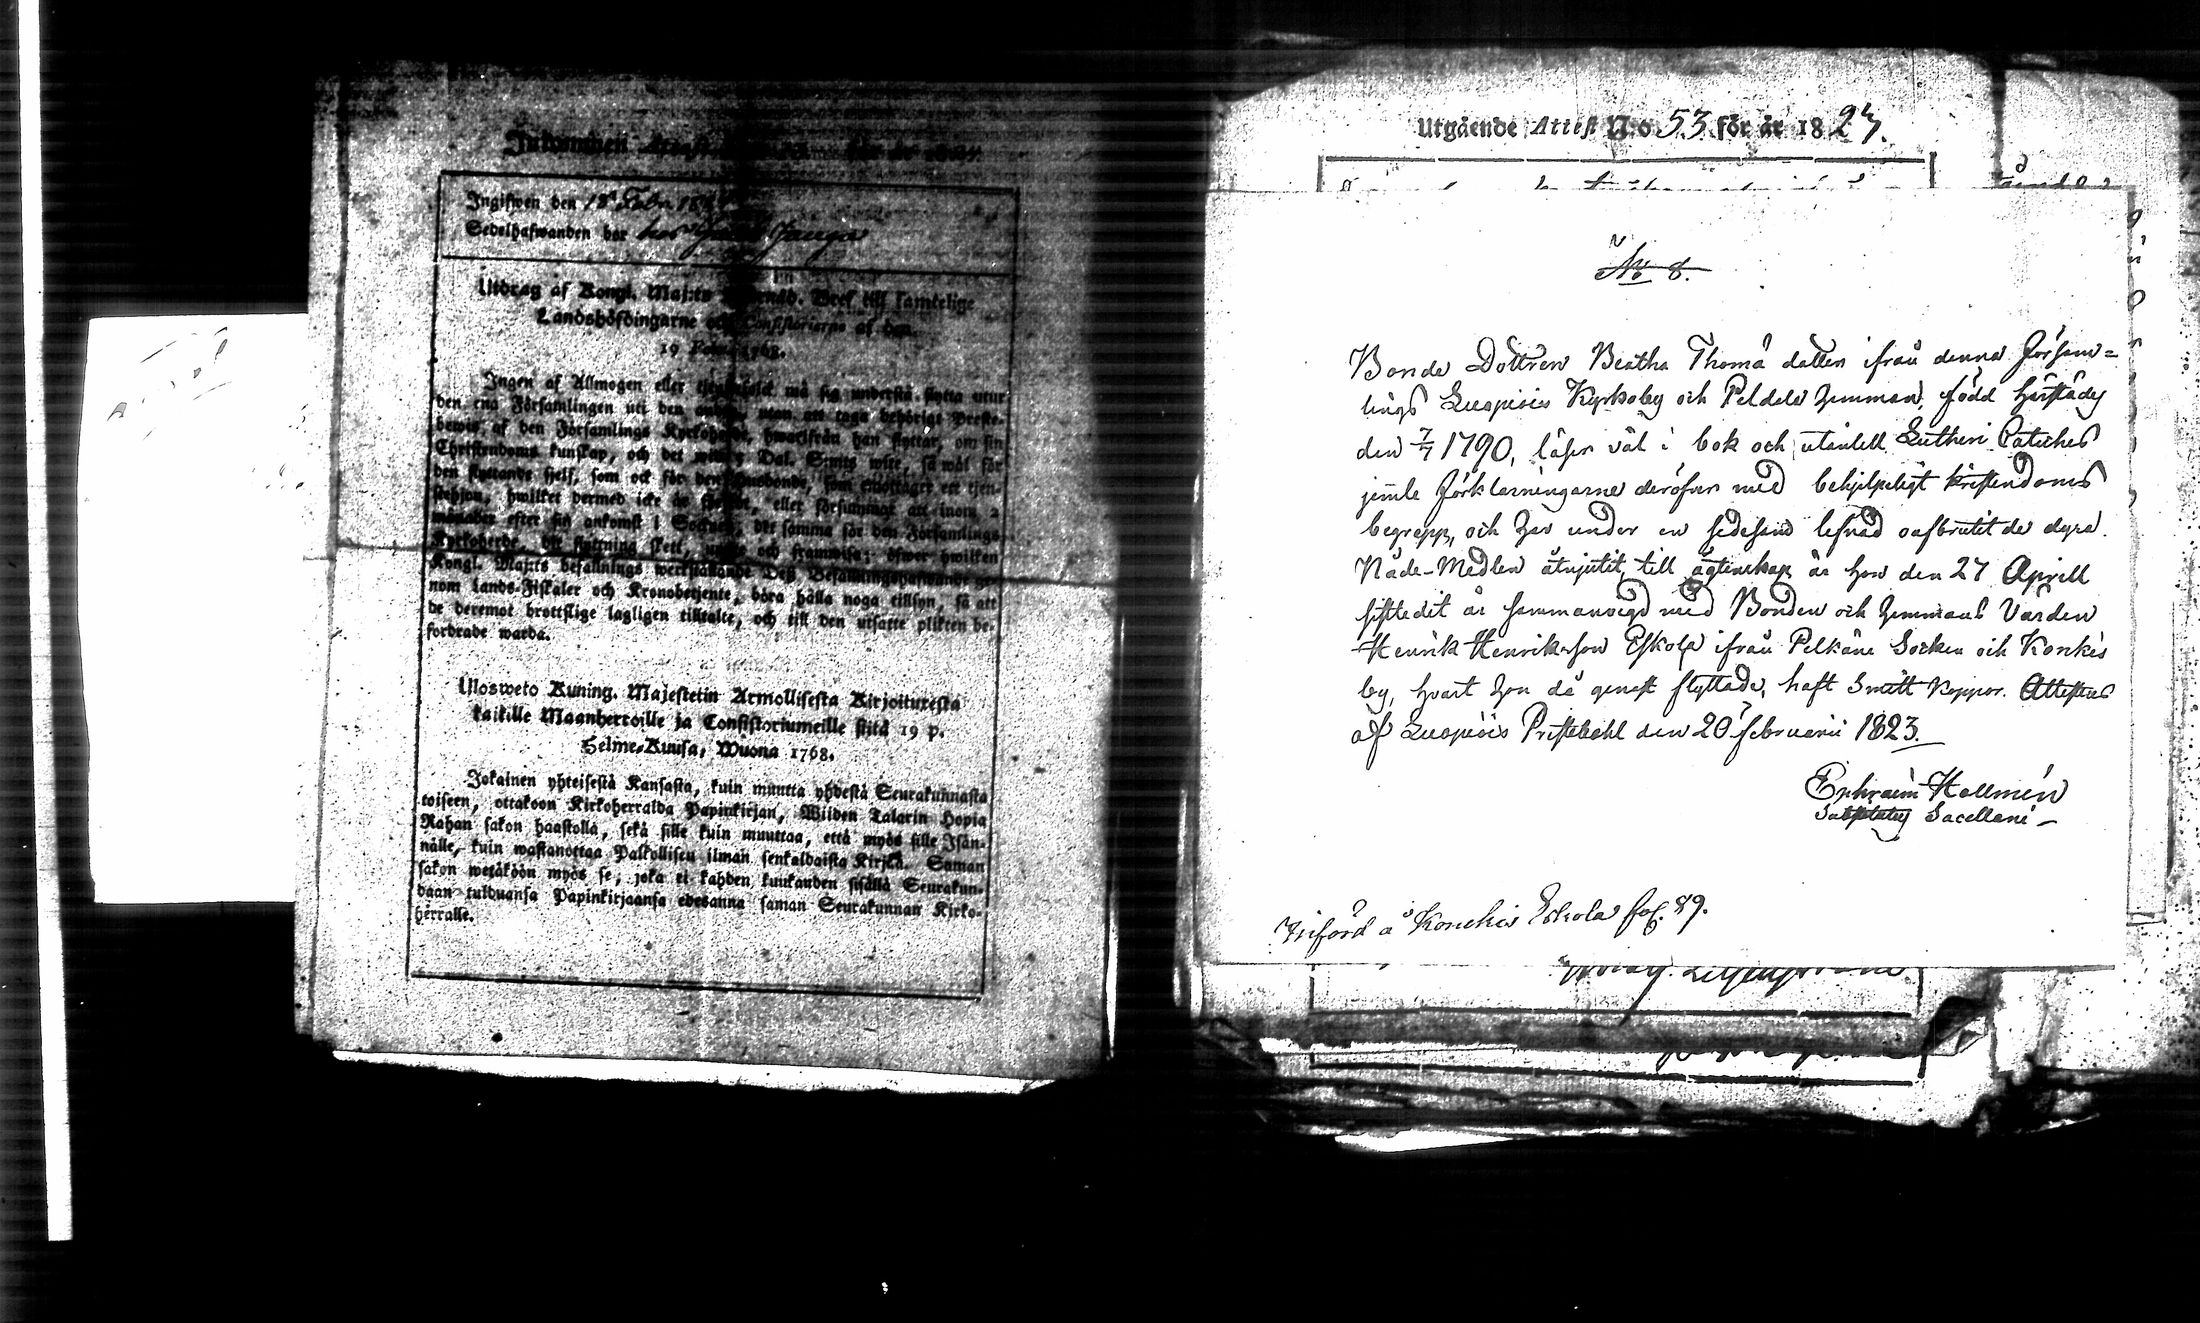 Inkommen Attest
Ingifwen den 18 Febr. 18
Sedelhafwanden bor hos
Utdrag af Kongl. Maj:ts Bref till samtelige
Landshöfdingarne och Consistorierne af den
19 Febr. 1768.
Ingen af Allmogen eller tjenstefolck må sig understå flytta utur
den ena Församlingen uti den andra, utan att taga behörigt Preste-
bewis af den Församlings Kyrkoherde, hwarifrån han flyttar, om sin
Christendoms kunskap, och det wid 5 Dal. S:mts wite, så wäl för
den flyttande sjelf, som ock för den Husbonde, som emottager ett tjen-
stehjon, hwilket dermed icke är försedt, eller försummat att inom 2
månader efter sin ankomst i Socknen, det samma för den Församlings
Kyrkoherde, dit flyttning skett, upte och framwisa; öfwer hwilken
Kongl. Maj:ts befallnings werkställande Deß Befallningshafwande ge-
nom Lands-Fiskaler och Kronobetjente, böra hålla noga tillsyn, så att
de deremot brottslige lagligen tilltalte, och till den utsatte plikten be-
fordrade warda.
Ulosweto Kuning. Majestetin Armollisesta Kirjoituresta
kaikille Maanherroille ja Consistoriumeille siitä 19 p.
Helme-Kuusa, Wuona 1768.
Jokainen yhteisestä Kansasta, kuin muutta yhdestä Seurakunnasta
toiseen, ottakoon Kirkoherralda Papinkirjan, Wiiden Talarin Hopia
Rahan sakon haastolla, sekä sille kuin muuttaa, että myös sille Isän-
nälle, kuin wastanottaa Palkollisen ilman senkaldaista Kirjaa. Saman
sakon wetäköön myös se, joka ei kahden kuukauden sisällä Seurakun-
daan tulduansa Papinkirjaansa edesanna saman Seurakunnan Kirko-
herralle.
Utgående Attest N:o 53 för år 1827.
No 8.
Bonde Dottren Beatha Thomä dotter ifrån denna Försam=
lings Luopiois Kyrkoby och Peldola hemman, född härstädes
den 7/7 1790, läser väl i bok och utantill Lutheri Cateches
jemte Förklarningarne deröfver med behjelpeligt kristendoms
begrepp, och har under en sedesam lefnad oafbrutit de dyra
Nåde-Medlen åtnjutit, till ägtenskap är hon den 27 Aprill
sistledit år sammanvigd med Bonden och hemmans Värden
Henrik Henriksson Eskola ifrån Pelkäne Socken och Konkis
by, hvart hon då genast flyttade, haft Smitt Koppor. Attesteras
af Luopiois Prestebohl den 20 februarii 1823.
Ephraim Hallmén
Sacellani
Införd å Konckis Eskola fol. 89.